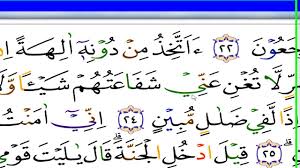 جَعُوْنَ ﴿٢٢﴾ ءَاَتَّخِذُ مِنْ دُوْنِهٖٓ اٰلِهَةً
رٍّ لَّا تُغْنِ عَنِّيْ شَفَاعَتُهُمْ شَيْـًٔا وَّلَا
ذًا لَّفِيْ ضَلٰلٍ مُّبِيْنٍ ﴿٢٤﴾ اِنِّيْٓ اٰمَنْتُ
﴿٢٥﴾ قِيْلَ ادْخُلِ الْجَنَّةَ ۗ قَالَ يٰلَيْتَ قَوْمِيْ